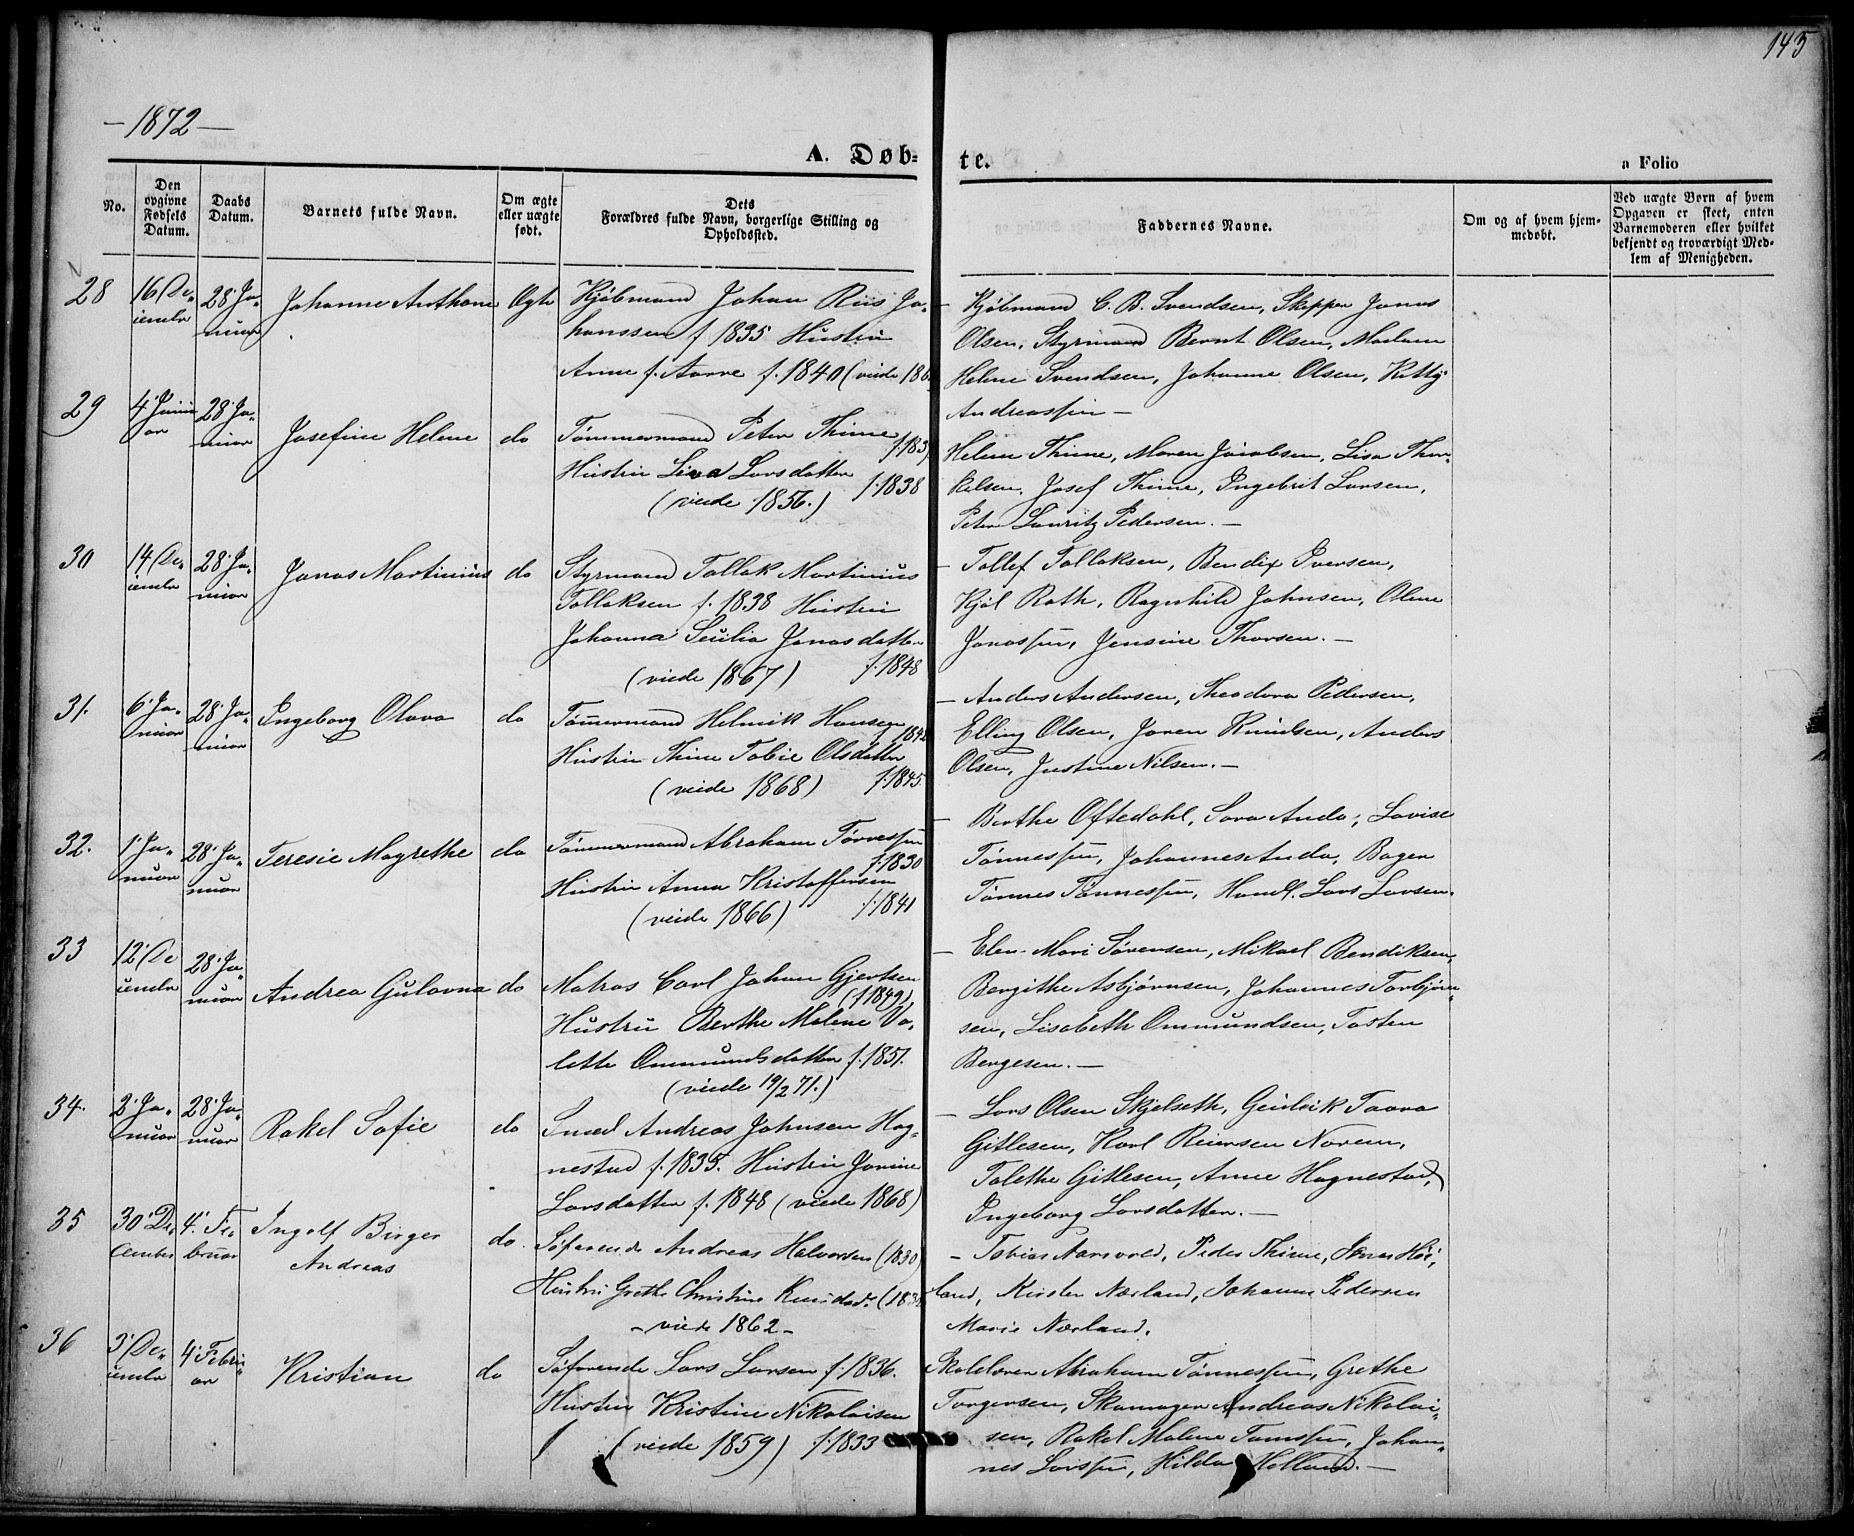 145
-1872-
A. Døb=
te.
a Folio
No.
Den opgivne Fødsels Datum.
Daabs Datum.
Barnets fulde Navn.
Om ægte eller uægte født.
Dets
Forældres fulde Navn, borgerlige Stilling og
Opholdssted.
Faddernes Navne.
Om og af hvem hjem-
medøbt.
Ved uægte Børn af hvem
Opgaven er skeet, enten
Barnemoderen eller hvilket
bekjendt og troværdigt Med-
lem af Menigheden.
28 16 De- 28' Ja- Johanne Anthone Ægte Kjøbmand Johan Riis Jo-
cembr nuar hanssen f 1835 Hustru
Anne f. Aarre f. 1840 (viede 186
- Kjøbmand C. B. Svendsen, Skipper Jonas
Olsen, Styrmand Bernt Olsen, Madam
Helene Svendsen, Johanne Olsen, Kitty
Andreassen -
29 4' Janu 28' Ja- Josefine Helene do Tømmermand Peter Thime
ar nuar f. 183
Hustru Lisa Larsdatter
(viede 1856.) f. 1838
Helene Thime, Maren Jacobsen, Lisa Thor-
kelsen, Josef Thime, Ingebrit Larsen,
Peter Lauritz Pedersen. -
30 14 De- 28' Ja- Jonas Martinius do Styrmand Tollak Martinius
cembr nuar Tollaksen f. 1838 Hustru
Johanna Secilia Jonasdatter
(viede 1867) f. 1848
- Tollef Tollaksen, Bendix Iversen,
Kjøl Roth, Ragnhild Johnsen, Oline
Jonassen, Jensine Thorsen. -
31. 6' Ja- 28' Ja- Ingeborg Olava do Tømmermand Helmik Hansen
nuar nuar f. 1842
Hustru Thine Tobie Olsdatter
(viede 1868) f. 1845.
- Anders Andersen, Theodora Pedersen,
Elling Olsen, Joren Knudsen, Anders
Olsen, Justine Nilsen. -
32. 1' Ja- 28' Ja- Teresie Magrethe do Tømmermand Abraham Tønnessen
nuar nuar f. 1830
Hustru Anna Kristoffersen
(viede 1866) f. 1841
- Berthe Oftedahl, Sara Anda, Lovise
Tønnessen, Johannes Anda, Bager
Tønnes Tønnessen, Handl. Lars Larsen.
33 12' De 28' Ja- Andrea Gulovna do Matros Carl Johan Gjertsen
cembr nuar (f 1849),
Hustru Berthe Malene Va-
lette Ommundsdatter f. 1851.
(viede 19/2 71.)
- Elen Mari Sørensen, Mikael Bendiksen,
Bergithe Asbjørnsen, Johannes Torbjørn-
sen, Lisabeth Ommundsen, Tosten
Bergesen. -
34. 2' Ja- 28' Ja- Rakel Sofie do Smed Andreas Johnsen Hog-
nuar nuar nestad f. 1835. Hustru Jonine
Larsdatter f. 1848 (viede 1868)
- Lars Olsen Skjelseth, Gudrik Taara
Gitlesen, Karl Reiersen Norem,
Talethe Gitlesen, Anne Hognestad,
Ingeborg Larsdatter. -
35 30' De, 4' Fe, Ingolf Birger do. Søfarende Andreas Halvorsen (1830)
cember bruar Andreas
Hustru Grethe Christine Knudsd. (183
- viede 1862 -
- Tobias Aarsvold, Peder Thime, Jonas Høi,
land, Kirsten Nærland, Johanne Pedersen
Marie Nærland.
36 3' De- 4' Febru Kristian do Søfarende Lars Larsen f. 1836.
cembr ar Hustru Kristine Nikolaisen
(viede 1859) f. 1833
Skolelærer Abraham Tønnessen, Grethe
Torgersen, Skomager Andreas Nikolai-
sen, Rakel Malene Tønnessen, Johan-
nes Larssen, Hilda Holland. -